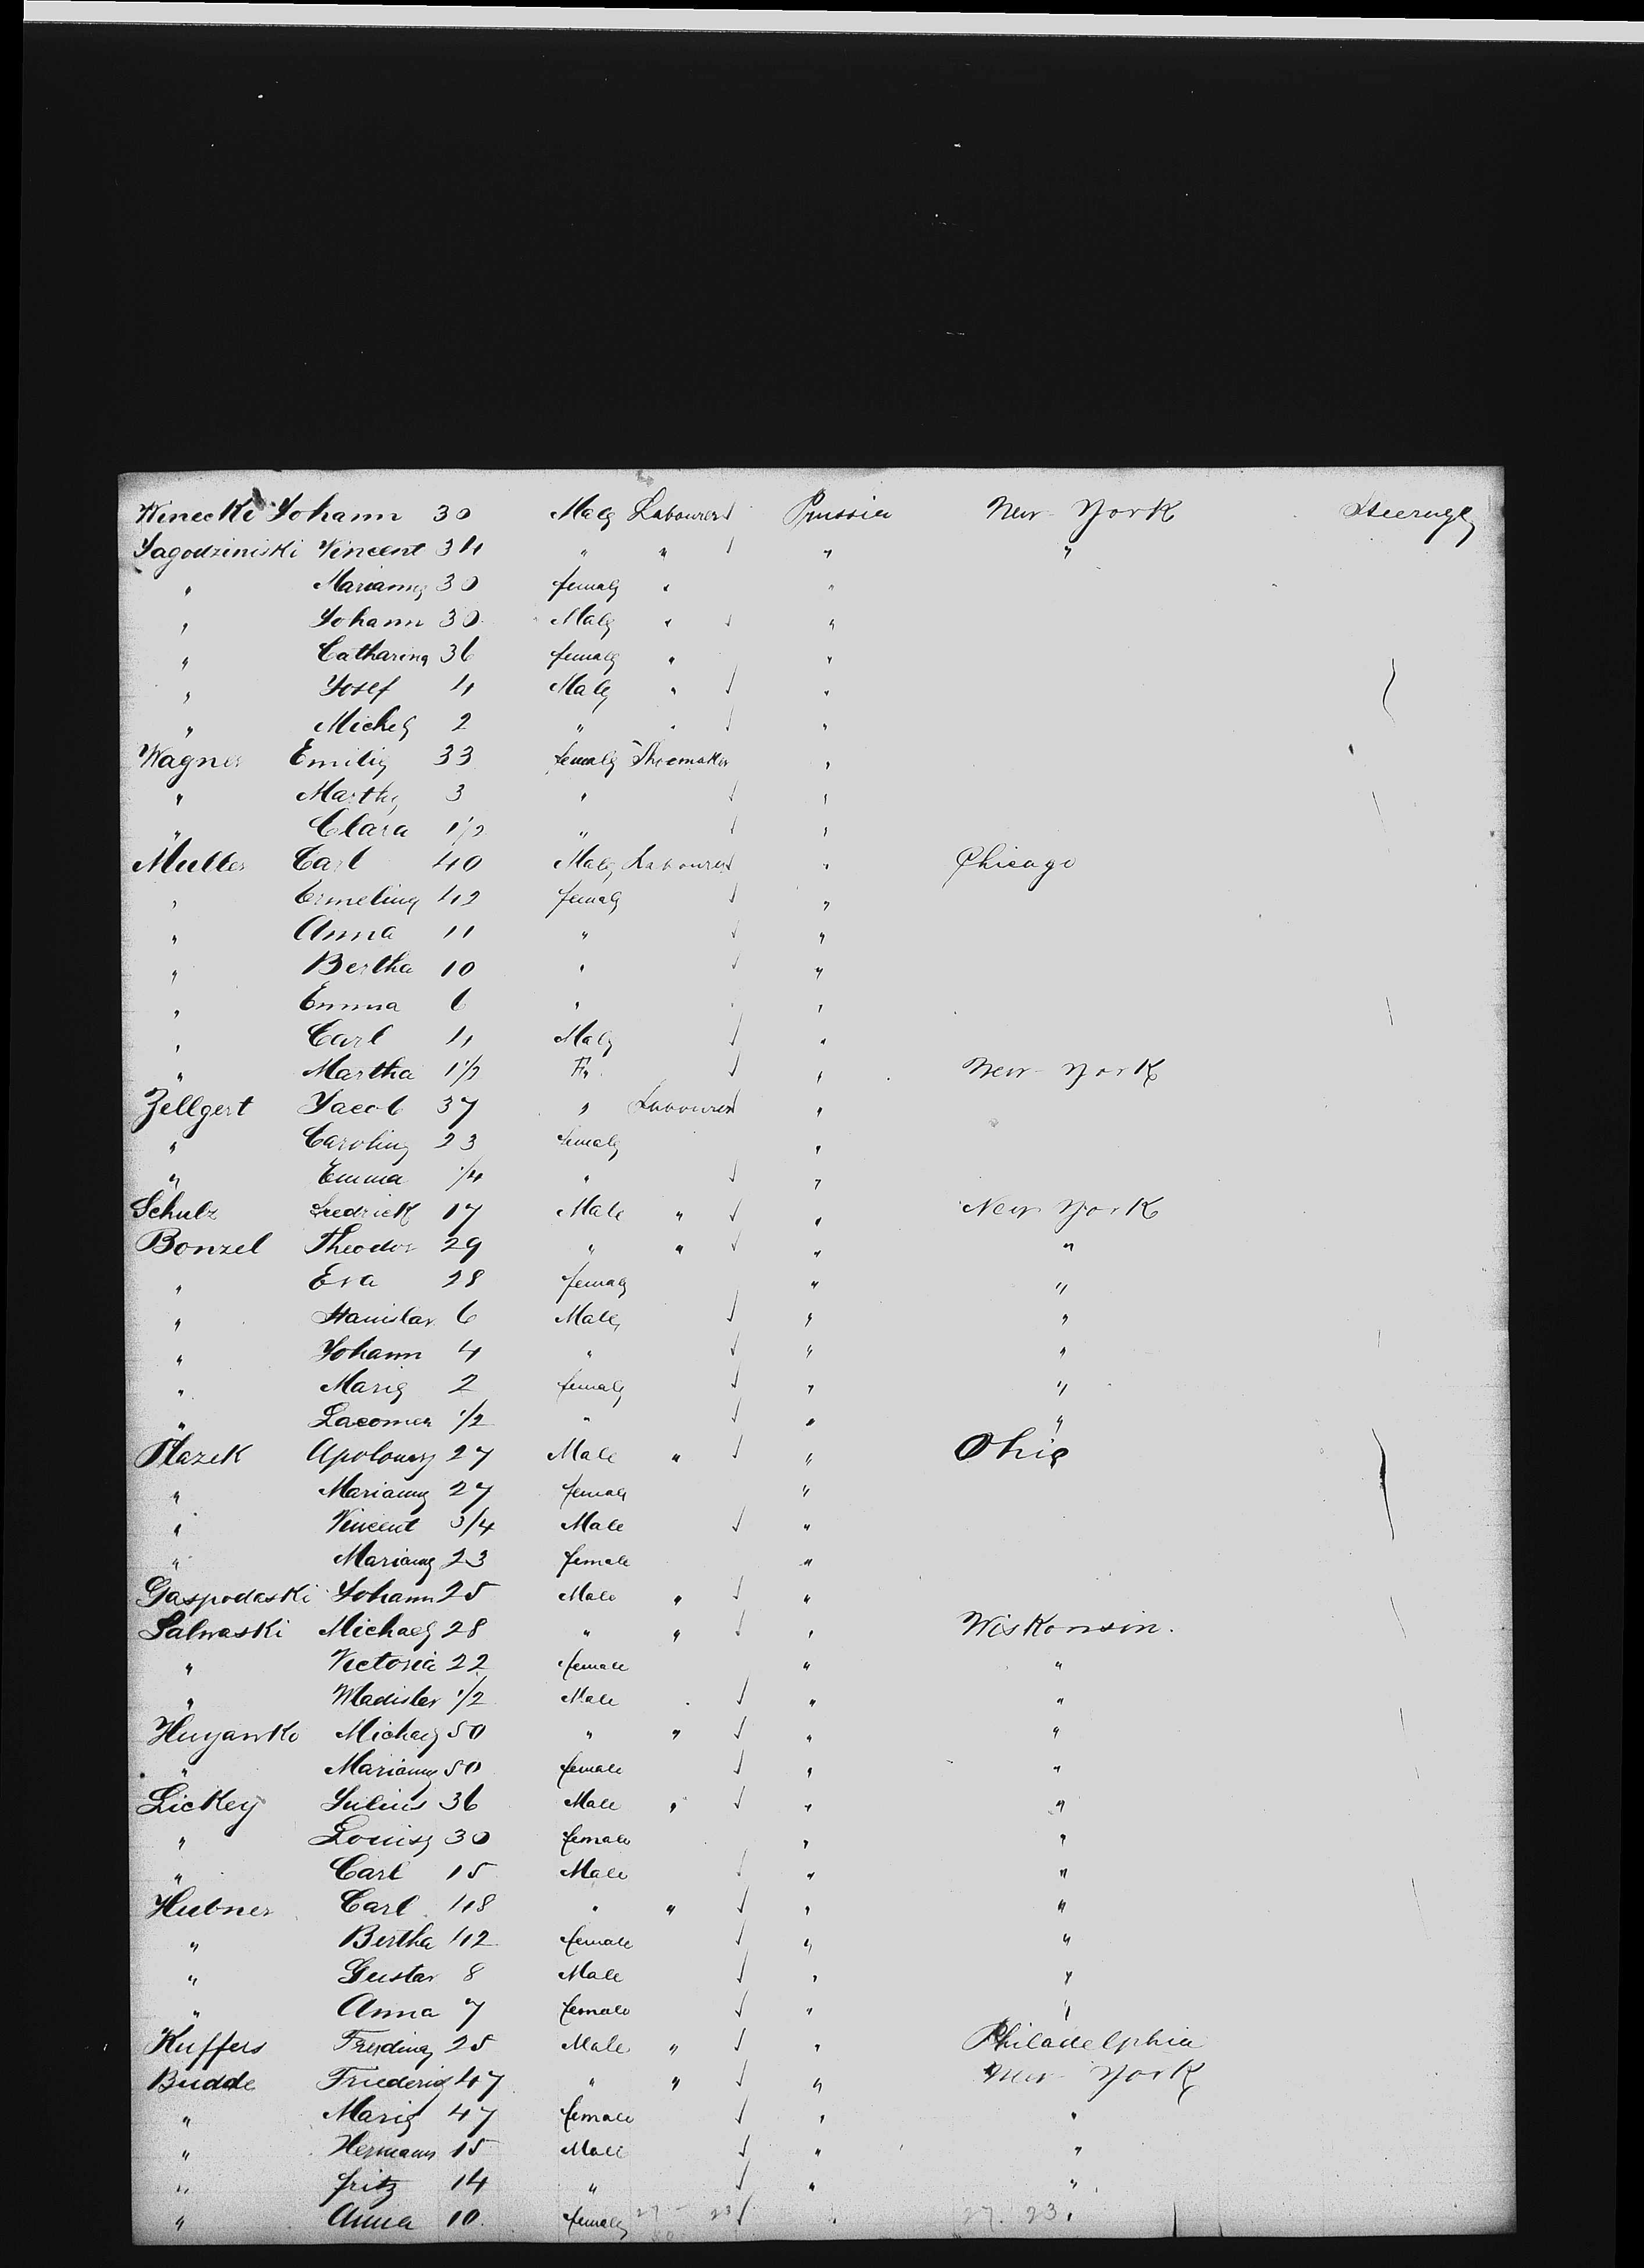 Winecki Johann 30 Male Labourer Prussia New York Steerage
Jagodziniski Vincent 34 " " " "
" Marianne 30 female " "
" Johann 30 Male " "
" Catharina 36 female " "
" Josef 4 Male " "
" Michel 2 " " "
Wagner Emilie 33 female Shoemaker "
" Marthe 3 " "
" Clara 1 1/2 " "
Muller Carl 40 Male Labourer " Chicago
" Ermeline 42 female "
" Anna 11 " "
" Bertha 10 " "
" Emma 6 " "
" Carl 4 Male "
" Martha 1 1/2 F. " New York
Zellgert Jacob 37 " Labourer "
" Caroline 23 female "
" Emma 1/4 " "
Schulz Fredrick 17 Male " " New York
Bonzel Theodor 29 " " " "
" Eva 28 female " "
" Stanislav 6 Male " "
" Johann 4 " " "
" Marie 2 female " "
" 1/2 " " "
Plazek 27 Male " " Ohio
" Marianne 27 female "
" Vincent 3/4 Male "
" Marianne 23 female "
Gaspodaski Johann 25 Male " "
Salwaski Michael 28 " " " Wiskonsin.
" Victoria 22 female " "
" Wladislav 1/2 Male " "
Michael 50 " " " "
" Marianne 50 female " "
Lickey Julius 36 Male " " "
" Louise 30 female " "
" Carl 15 Male " "
Hubner Carl 48 " " " "
" Bertha 42 female " "
" Gustav 8 Male " "
" Anna 7 female " "
Kuffers 25 Male " " Philadelphia
Budde Friederig 47 " " " New York
" Marie 47 female " "
" Hermann 15 Male " "
" fritz 14 " " "
" Anna 10 female 27 23 " 27. 23.